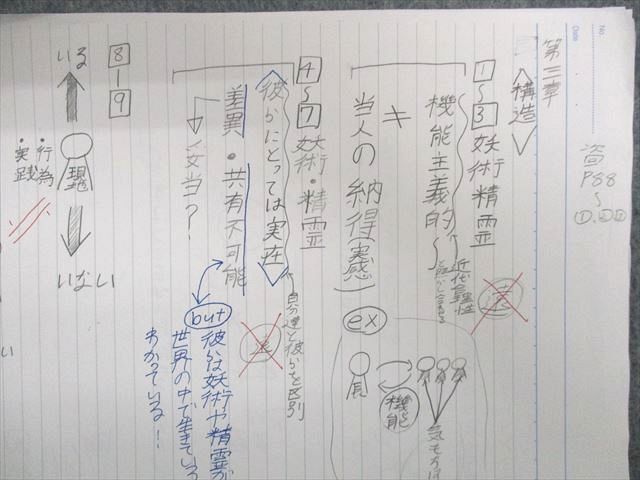 No.
Date
第三章
資P88〜①.②③
〈構造〉
1〜3 妖術精霊
機能主義的〜
近代合理性
≠
当人の納得(実感)
ex
長
機能
気もちは
4〜7 妖術・精霊
〈彼らにとっては実在〉
自分達と彼らを区別
差異・共有不可能
→妥当?
but
彼らは妖術や精霊が
世界の中で生きている
わかっている!
8-9
いる
現
いない
・行為
・実践